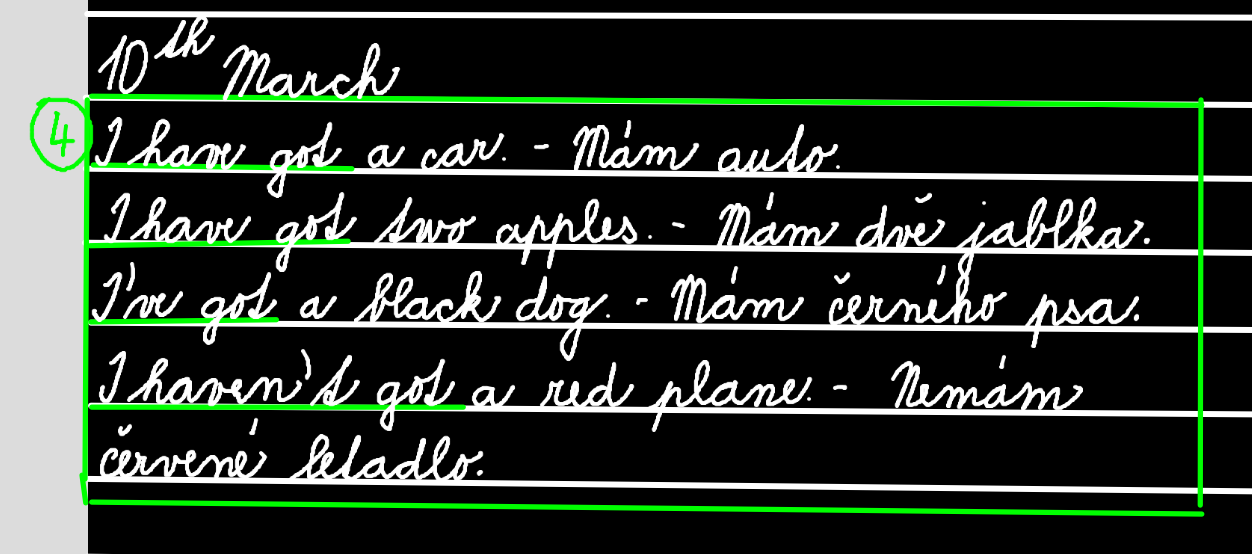 10th March
4
I have got a car. - Mám auto.
I have got two apples. - Mám dvě jablka.
I've got a black dog. - Mám černého psa.
I haven't got a red plane. - Nemám
červené letadlo.